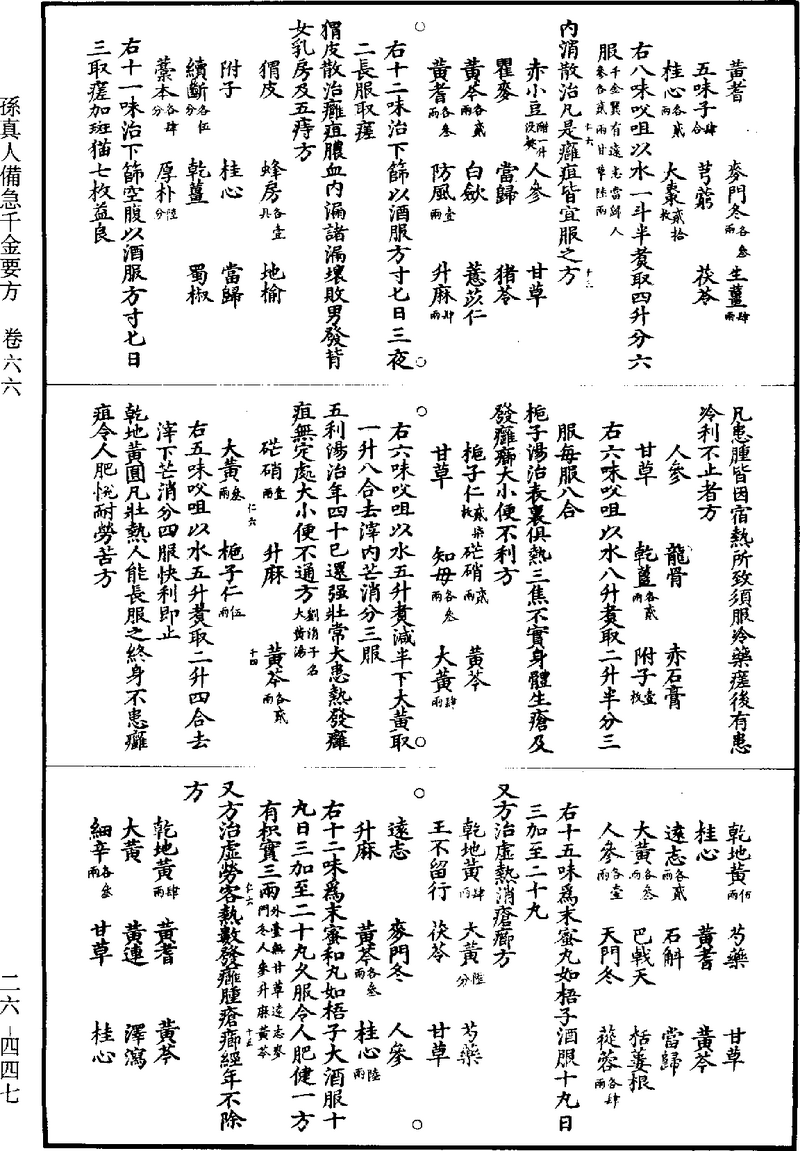 黃耆　麥門冬各叁兩　生薑肆兩
五味子肆合　芎藭　茯苓
桂心各貳兩　大棗貳拾枚
右八味㕮咀以水一斗半煑取四升分六
服千金翼有遠志當歸人參各貳兩甘草陸兩
內消散治凡是癰疽皆宜服之方
赤小豆醋一升沒　人參　甘草
瞿麥　當歸　猪苓
黃芩各貳兩　白歛　薏苡仁
黃耆各叁兩　防風壹兩　升麻肆兩
右十二味治下篩以酒服方寸匕日三夜
二長服取瘥
猬皮散治癰疽膿血內漏諸漏壞敗男發背
女乳房及五痔方
猬皮　蜂房各壹具　地榆
附子　桂心　當歸
續斷各伍分　乾薑　蜀椒
藁本各肆分　厚朴陸分
右十一味治下篩空腹以酒服方寸匕日
三取瘥加斑猫七枚益良
凡患腫皆因宿熱所致須服冷藥瘥後有患
冷利不止者方
人參　龍骨　赤石膏
甘草　乾薑各貳兩　附子壹枚
右六味㕮咀以水八升煑取二升半分三
服每服八合
梔子湯治表裏俱熱三焦不實身體生瘡及
發癰癤大小便不利方
梔子仁貳柒枚　芒硝貳兩　黃芩
甘草　知母各叁兩　大黃肆兩
右六味㕮咀以水五升煑減半下大黃取
一升八合去滓內芒消分三服
五利湯治年四十已還强壯常大患熱發癰
疽無定處大小便不通方劉涓子名大黃湯
芒硝壹兩　升麻　黃芩各貳兩
大黃叁兩　梔子仁伍兩
右五味㕮咀以水五升煑取二升四合去
滓下芒消分四服快利即止
乾地黃圓凡壯熱人能長服之終身不患癰
疽令人肥悅耐勞苦方
乾地黃伍兩　芍藥　甘草
桂心　黃耆　黃芩
遠志各貳兩　石斛　當歸
大黃各叁兩　巴戟天　栝蔞根
人參各壹兩　天門冬　蓯蓉各肆兩
右十五味爲末蜜丸如梧子酒服十丸日
三加至二十丸
又方治虛熱消瘡癤方
乾地黃肆兩　大黃陸分　芍藥
王不留行　茯苓　甘草
遠志　麥門冬　人參
升麻　黃芩各叁兩　桂心陸兩
右十二味爲末蜜和丸如梧子大酒服十
丸日三加至二十丸久服令人肥健一方
有枳實三兩外臺無甘草遠志麥門冬人參升麻黃芩
又方治虛勞客熱數發癰腫瘡癤經年不除
方
乾地黃肆兩　黃耆　黃芩
大黃　黃連　澤瀉
細辛各叁兩　甘草　桂心
孫真人備急千金要方　卷六六
二六-四四七